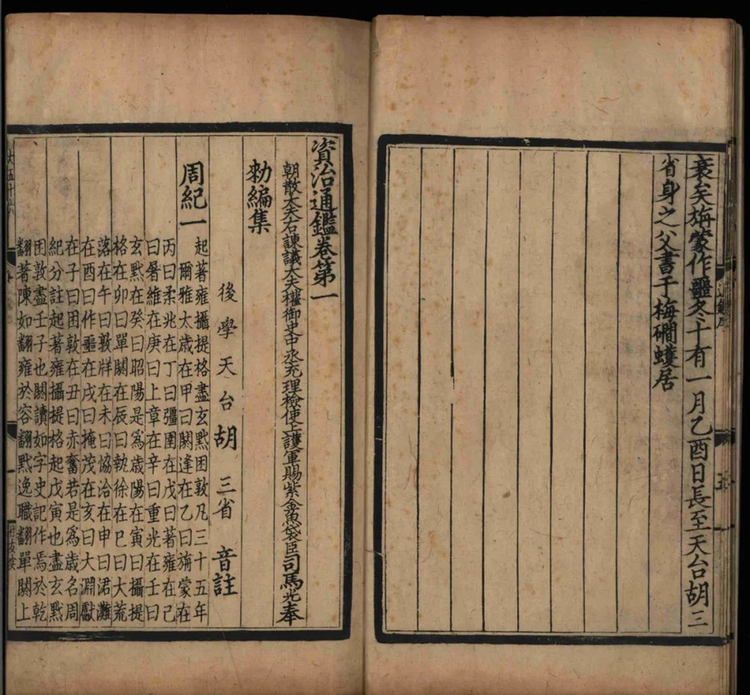 衰矣旃蒙作噩冬十有一月乙酉日長至天台胡三
省身之父書于梅磵蠖居
資治通鑑卷第一
朝散大夫右諫議大夫權御史中丞充理檢使上護軍賜紫金魚袋臣司馬光奉
勑編集
後學天台胡三省音註
周紀一
起著雍攝提格盡玄黓困敦凡三十五年
爾雅太歲在甲曰閼逢在乙曰旃蒙在
丙曰柔兆在丁曰彊圉在戊曰著雍在己
曰屠維在庚曰上章在辛曰重光在壬曰
玄黓在癸曰昭陽是爲歲陽在寅曰攝提
格在卯曰單閼在辰曰執徐在巳曰大荒
落在午曰敦牂在未曰協洽在申曰涒灘
在酉曰作噩在戌曰掩茂在亥曰大淵獻
在子曰困敦在丑曰赤奮若是爲歲名周
紀分註起著雍攝提格起戊寅也盡玄黓
困敦盡壬子也閼讀如字史記作焉於乾
翻著陳如翻雍於容翻黓逸職翻單閼上